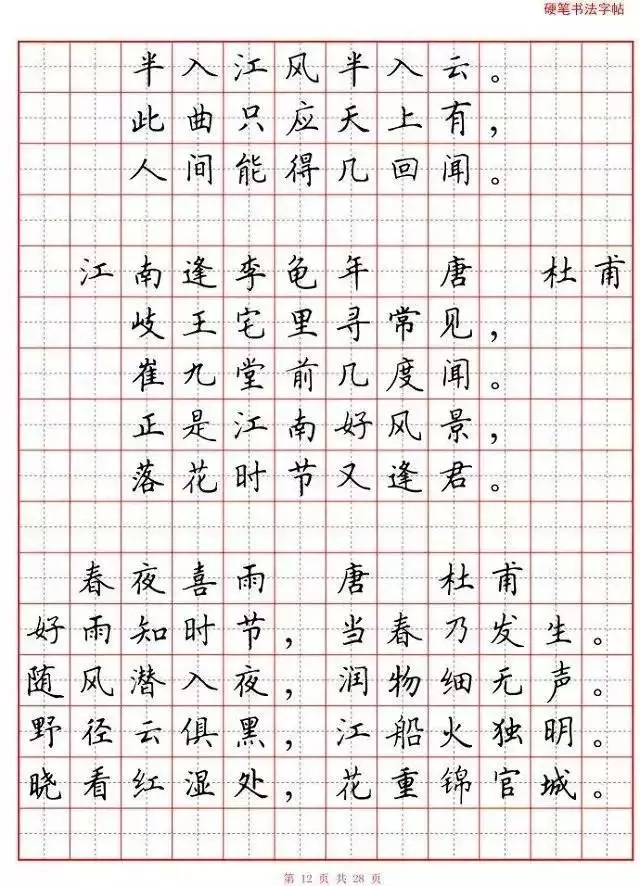 硬笔书法字帖
半入江风半入云。
此曲只应天上有，
人间能得几回闻。
江南逢李龟年 唐 杜甫
岐王宅里寻常见，
崔九堂前几度闻。
正是江南好风景，
落花时节又逢君。
春夜喜雨 唐 杜甫
好雨知时节，当春乃发生。
随风潜入夜，润物细无声。
野径云俱黑，江船火独明。
晓看红湿处，花重锦官城。
第 12 页 共 28 页